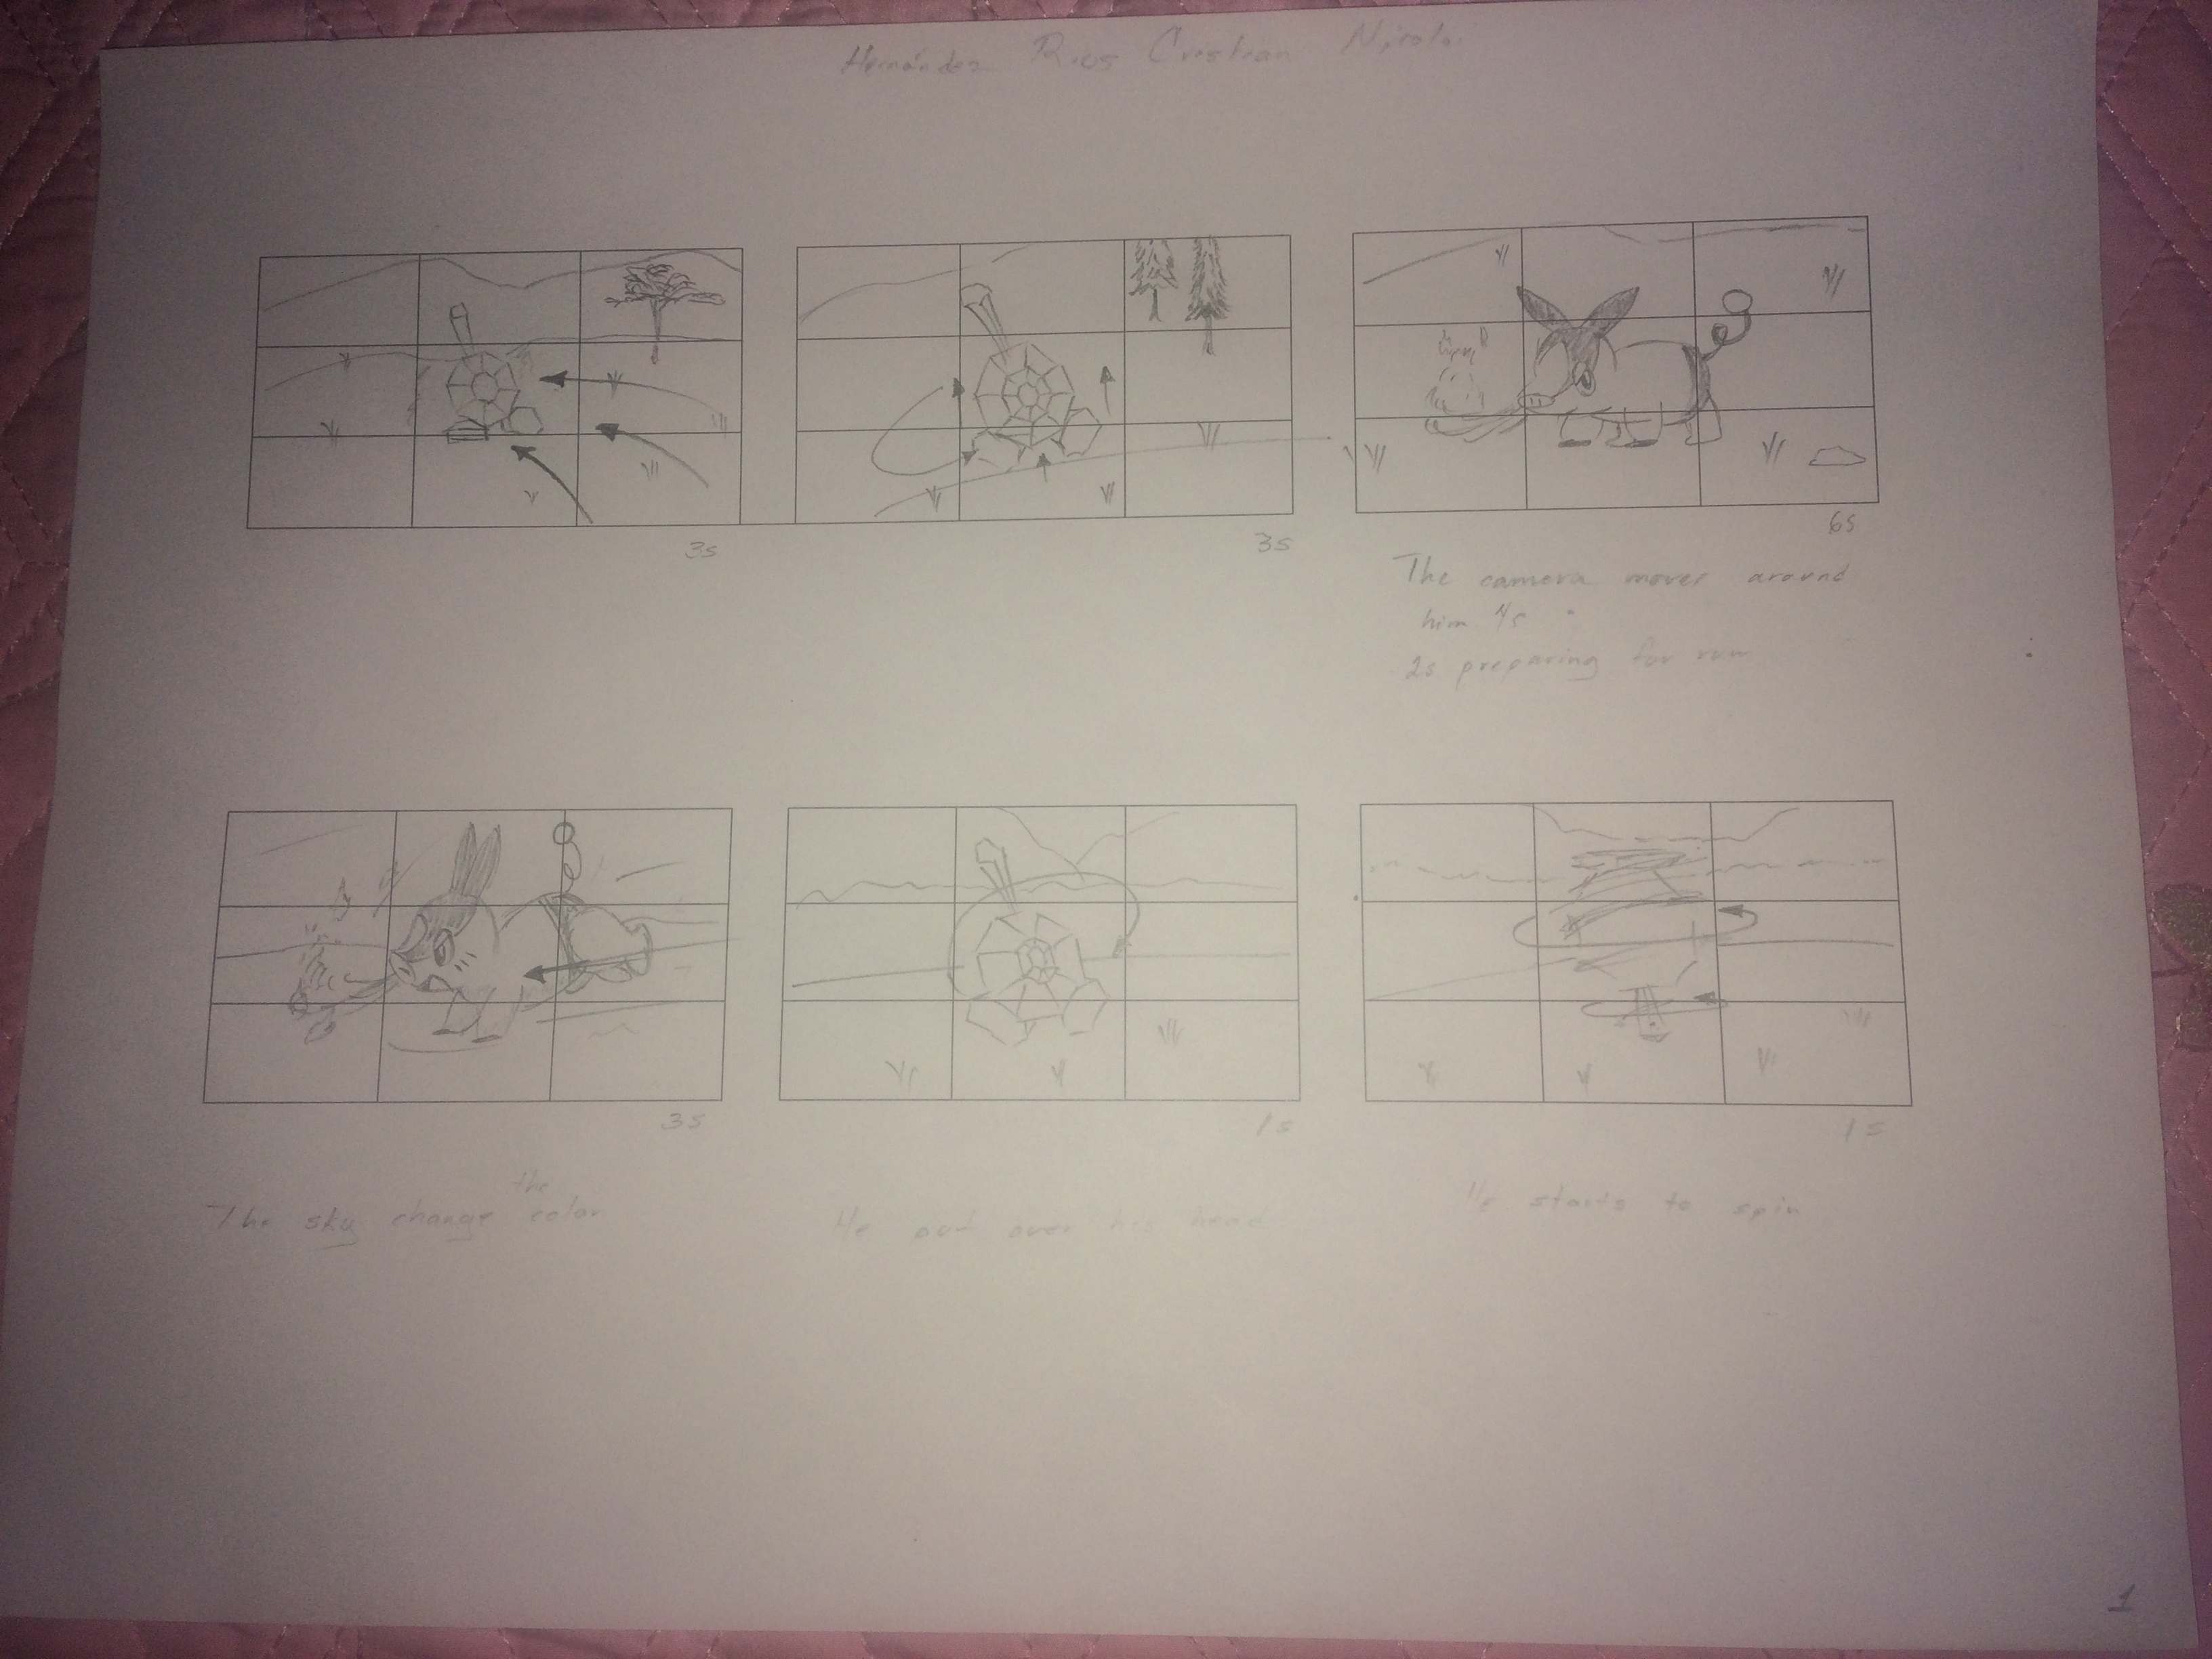 Hernández Rios Cristian Nicolas
3s
3s
6s
The camera moves around
him 4s
2s preparing for run
3s
1s
1s
the
The sky change color
He put over his head
He starts to spin
1